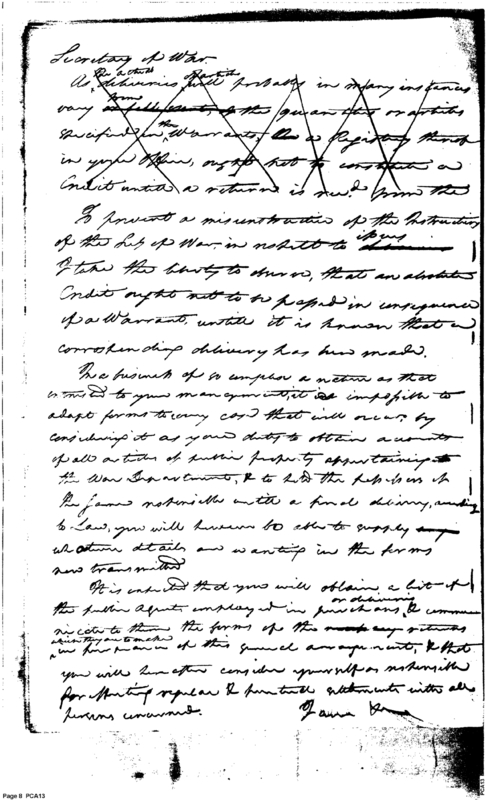 Secretary of War.
As the actual deliveries of articles will probably in many instances
vary from the quantities or articles
specified in the Warrants, a Registry thereof
in your Office, ought not to constitute a
Credit until a return is recd. from the
To prevent a misconstruction of the Instructions
of the Secy of War in respect to issues
I take the liberty to observe, that an absolute
Credit ought not to be passed in consequence
of a Warrant, untill it is known that a
corresponding delivery has been made.
In a business of so complex a nature as that
committed to your management, it is impossible to
adapt forms to every case that will occur, by
considering it as your duty to obtain accounts
of all articles of public property appertaining to
the War Department, & to hold the possessors of
the same responsible until a final delivery, according
to Law, you will however be able to supply
whatever details are wanting in the forms
now transmitted
It is expected that you will obtain a list of
the public Agents employed in purchases, or deliveries & commu-
nicate to them the forms of the returns
which they are to make
in pursuance of this general arrangement, & that
you will hereafter consider yourself as responsible
for effecting regular & punctual settlements with all
persons concerned.
Page 8 PCA13
PCA13